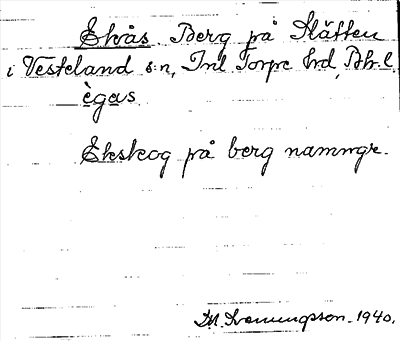 Ekås. Berg på Slätten
i Vesteland s:n, Inl. Torpe hrd, Bh. l.
ègas.
Ekskog på berg namngr.
1940.